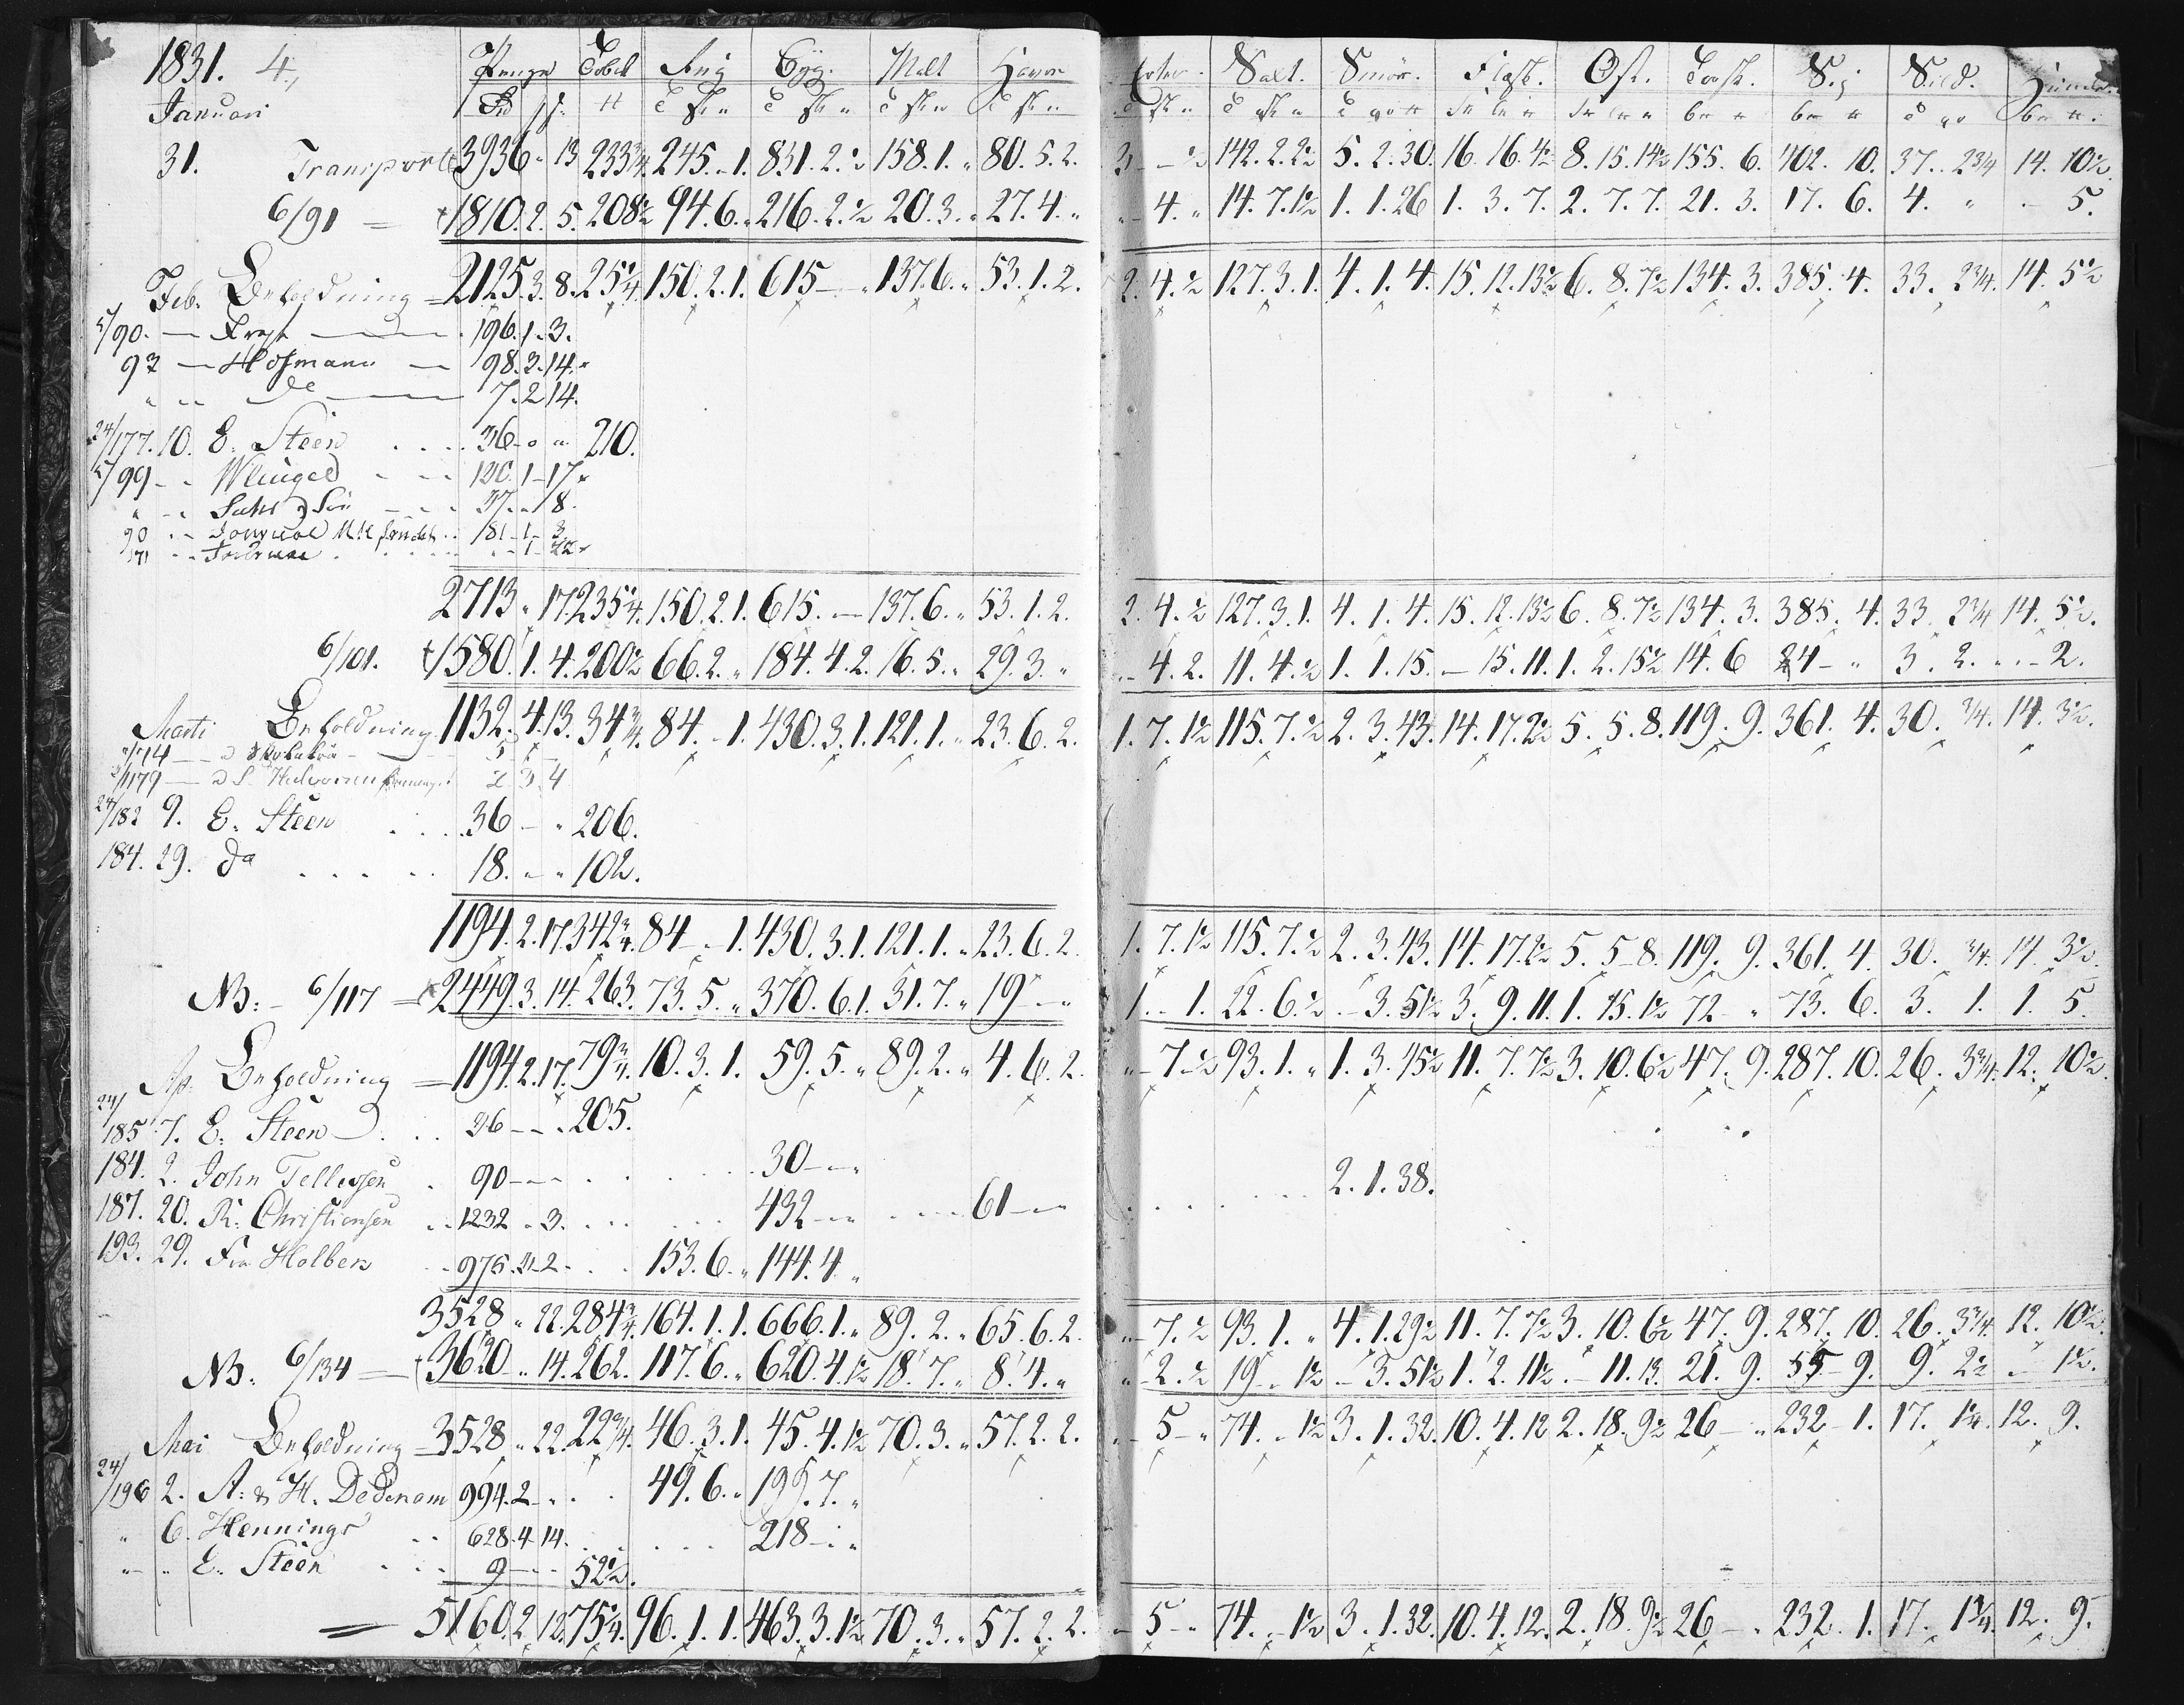 1831. 4., Penge Tobak Rug Byg. Malt Havre Erter. Salt. Smör. Flesk. Ost. Torsk. Sej Sild. Humle.
Januari
31. Transport 3936 " 13 233 3/4 245. - 1. 831. 2. ½ 158. 1. " 80. 5. 2. 3 - - ½ 142. 2. 2½ 5. 2. 30. 16. 16. 4½ 8. 15. 14½ 155. 6. 402. 10. 37. . 2 3/4 14. 10½
6/91 = 1810. 2. 5. 208½ 94. 6. " 216. 2. ½ 20. 3. " 27. 4. " " - 4. " 14. 7. 1½ 1. 1. 26 1. 3. 7. 2. 7. 7. 21. 3. 17. 6. 4. " - 5.
Feb. Beholdning = 2125. 3. 8. 25¼ 150. 2. 1. 615 - " 137. 6. " 53. 1. 2. 2. 4. ½ 127. 3. 1. 4. 1. 4. 15. 12. 13½ 6. 8. 7½ 134. 3. 385. 4. 33. 2 3/4. 14. 5½
5/90. 196. 1. 3.
92 - Hofmann - 98. 3. 14.
" " do 7. 2 14.
24/177. 10. E. Steen 36 - " " 210.
5/99 - " 120. 1 - 17
" - " & Sön 37. " 18.
90 181 - 1 - 3
- 1 - 22
2713 " 17. 235¼. 150. 2. 1. 615. - 137. 6. " 53. 1. 2. 2. 4. ½ 127. 3. 1. 4. 1. 4. 15. 12. 13½ 6. 8. 7½ 134. 3. 385. 4. 33. 2 3/4 14. 5½.
6/101. 1580. 1. 4. 200½ 66. 2. " 184. 4. 2. 16. 5. " 29. 3. " " - 4. 2. 11. 4. ½ 1. 1. 15. - 15. 11. 1. 2. 15½ 14. 6 24 - " 3. 2. " - 2.
Marti Beholdning 1132. 4. 13. 34 3/4. 84. - 1. 430. 3. 1. 121. 1. " 23. 6. 2. 1. 7. 1½ 115. 7. ½ 2. 3. 43. 14. 17. 2½ 5. 5. 8. 119. 9. 361. 4. 30. 3/4. 14. 3½.
2 3 4
24/182 9. E. Steen 36 - " 206.
184. 29. do 18. - " 102.
1194. 2. 17. 342 3/4. 84 - 1. 430. 3. 1. 121. 1. " 23. 6. 2. 1. 7. 1½ 115. 7. ½ 2. 3. 43. 14. 17. 2½ 5. 5 - 8. 119. 9. 361. 4. 30. 3/4 14. 3½
NB: - 6/117 = 2449. 3. 14. 263. 73. 5. " 370. 6. 1. 31. 7. " 19 - " 1. - 1. 22. 6. ½ - 3. 51½ 3. 9. 11. 1. 15. 1½ 72 - " 73. 6. 3. 1. 1. 5.
Ap. Beholdning = 1194. 2. 17. 79 3/4. 10. 3. 1. 59. 5. " 89. 2. " 4. 6. 2. " - 7 - ½ 93. 1. " 1. 3. 45½ 11. 7. 7½ 3. 10. 6½ 47. 9. 287. 10. 26. 3 3/4. 12. 10½.
24/185 7. E. Steen 36 - - . 205.
184. 2. John Tellefsen 90 - - - 30 - - " 2. 1. 38.
187. 20. R. Christiansen 1232 " 3. 432 - - 61 - -
193. 29. Fr. Holbek 975. 3. 2 153. 6. " 144. 4 "
3528 " 22. 284 3/4. 164. 1. 1. 666. 1. " 89. 2. " 65. 6. 2. " - 7. ½ 93. 1. " 4. 1. 29½ 11. 7. 7½ 3. 10. 6½ 47. 9. 287. 10. 26. 3 3/4. 12. 10½.
NB. 6/134 = 3620 " 14. 262. 117. 6. " 620. 4. 1½ 18. 7. " 8. 4. " " - 2. ½ 19 - 1½ - 3. 51½ 1. 2. 11½. - 11. 13. 21. 9. 55 - 9. 9. 2½ - 1½.
Mai Beholdning = 3528 " 22. 22 3/4. 46. 3. 1. 45. 4. 1½ 70. 3. " 57. 2. 2. - 5 - " 74. " 1½ 3. 1. 32. 10. 4. 12 2. 18. 9½ 26 - " 232 - 1. 17. 1¼. 12. 9.
24/196 2. A: & H. Dedenam 994. 2 - " 49. 6. " 199. 7. "
" 6. Hennings 628. 4. 14. 218 - "
" " E. Steen 9 - - 52½.
= 5160. 2. 12. 75¼. 96. 1. 1. 463. 3. 1½ 70. 3. " 57. 2. 2. - 5 - " 74. - 1½ 3. 1. 32. 10. 4. 12. 2. 18. 9½ 26 - " 232. 1. 17. 1¼. 12. 9.